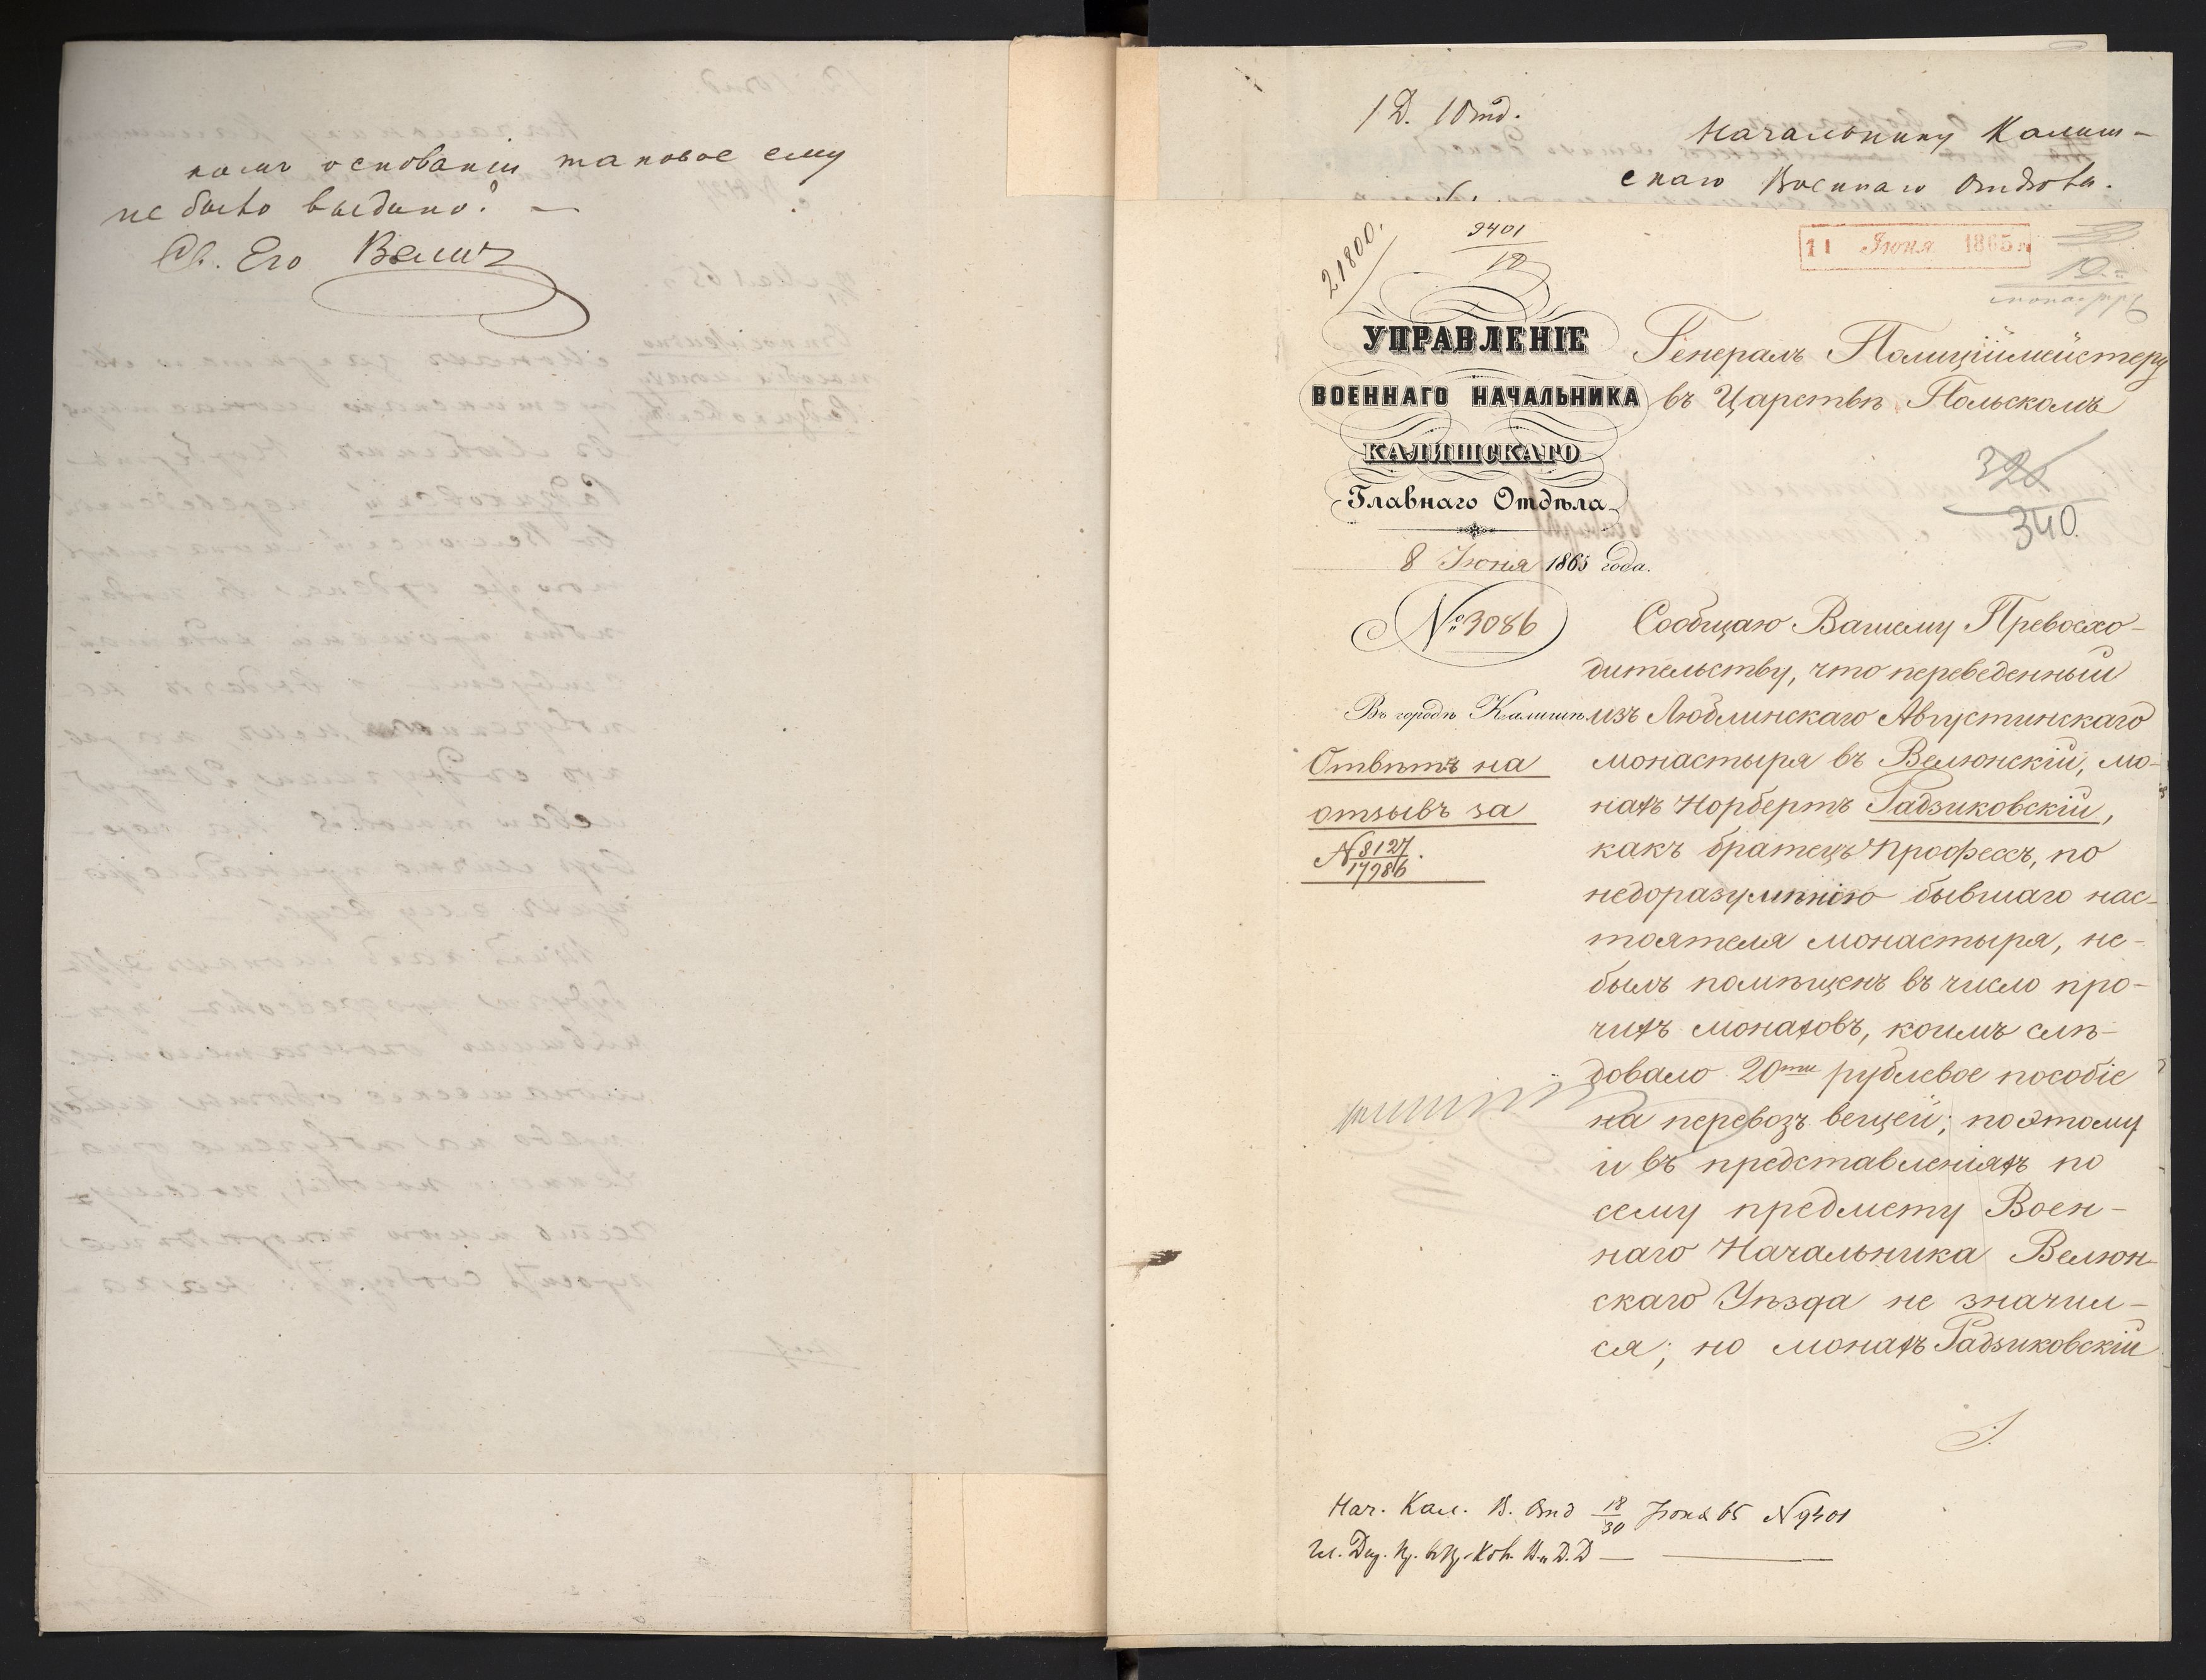 комъ основаніи таковое ему
не было выдано? —
1 Д. 1 Отд.
Начальнику Калиш-
скаго Военнаго Отдѣла.
21800.
9401
11 Іюня 1865 г.
УПРАВЛЕНІЕ
ВОЕННАГО НАЧАЛЬНИКА
КАЛИШСКАГО
Главнаго Отдѣла
8 Іюня 1865 года.
№ 3086
Въ городѣ Калишѣ
Отвѣтъ на
отзывъ за
№ 8127
17986.
Генералъ Полиціймейстеру
въ Царствѣ Польскомъ
340.
Сообщаю Вашему Превосхо-
дительству, что переведенный
изъ Люблинскаго Августинскаго
монастыря въ Велюнскій, мо-
нахъ Норбертъ Радзиковскій,
какъ братецъ Професъ, по
недоразумѣнію бывшаго нас-
тоятеля монастыря, не-
былъ помѣщенъ въ число про-
чихъ монаховъ, коимъ слѣ-
довало 20ти рублевое пособіе
на перевозъ вещей; поэтому
и въ представленіяхъ по
сему предмету Воен-
наго Начальника Велюн-
скаго Уѣзда не значил-
ся; но монахъ Радзиковскій
Нач. Кал. В. Отд 18/30 Іюня 65 № 9401